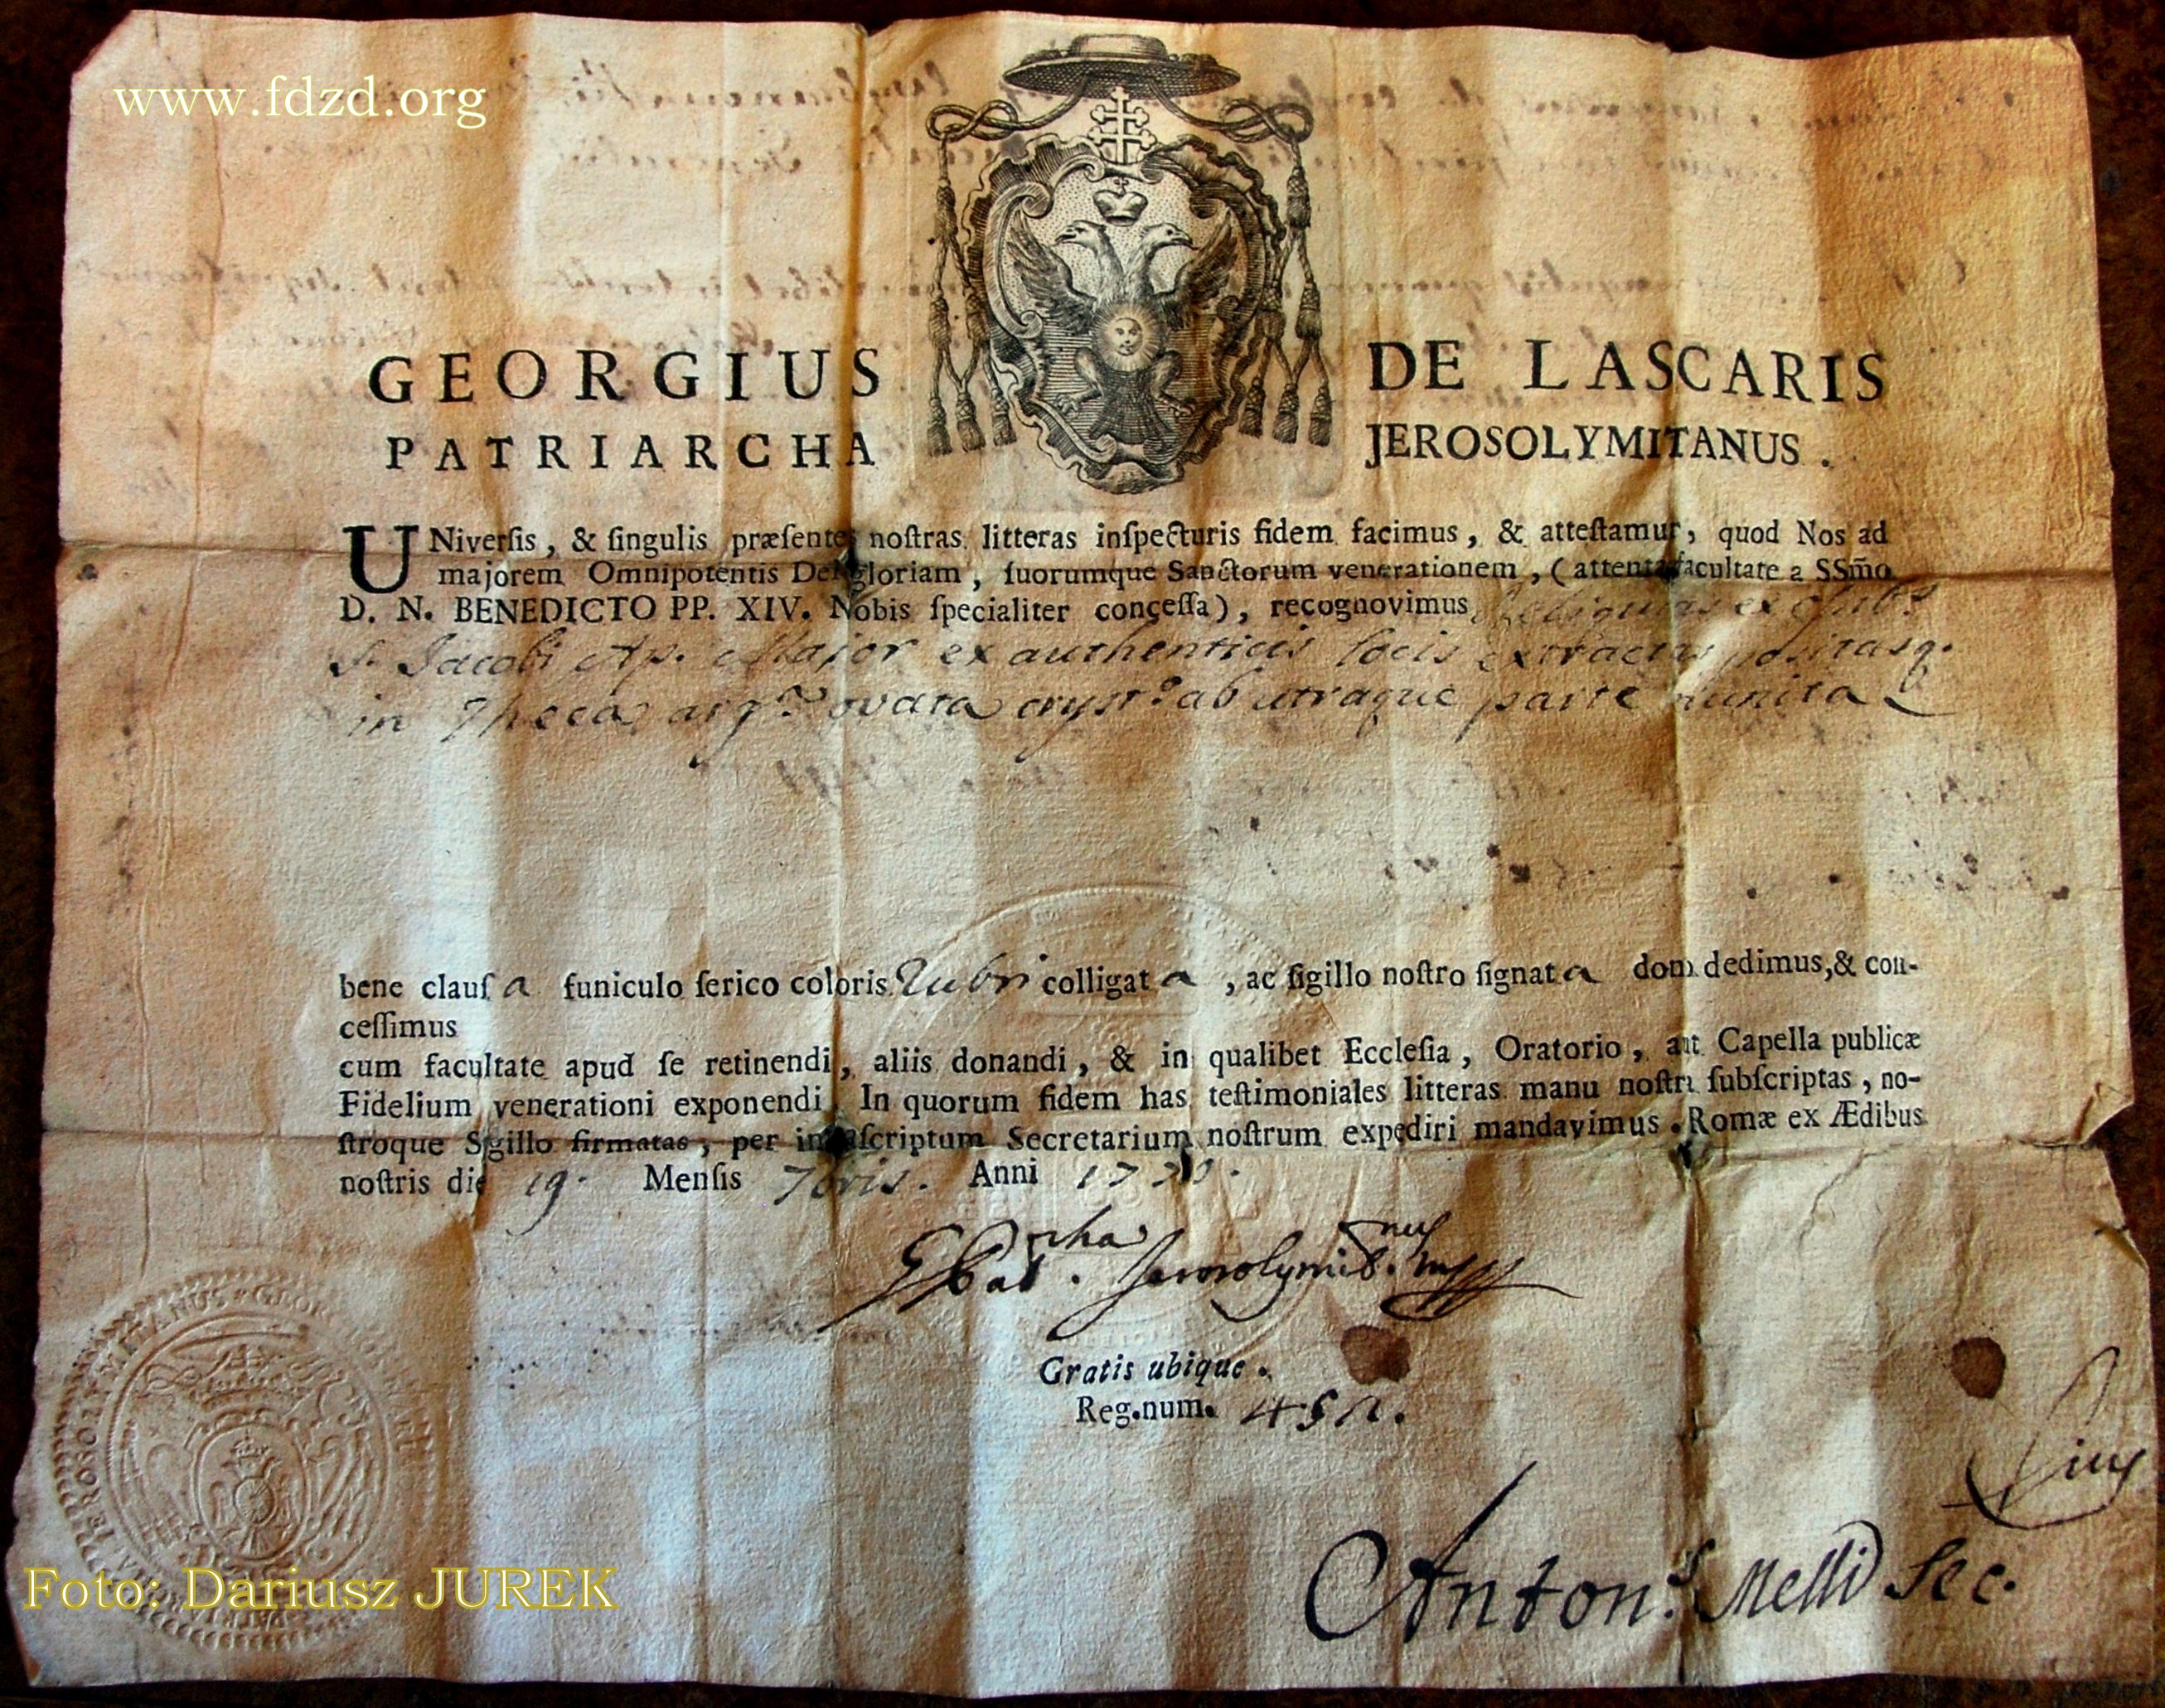 www.fdzd.org
GEORGIUS DE LASCARIS
PATRIARCHA JEROSOLYMITANUS.
UNiverſis, & ſingulis præſentes noſtras litteras inſpecturis fidem facimus, & atteſtamur, quod Nos ad
majorem Omnipotentis Dei gloriam, ſuorumque Sanctorum venerationem, (attenta facultate a SSm̃o
D. N. BENEDICTO PP. XIV. Nobis ſpecialiter conceſſa), recognovimus Reliquias ex
S. Jacobi Ap. Major ex authenticis locis extractas positasq.
in Theca arg. ovata cryst. ab utraque parte munita
bene clauſa funiculo ſerico coloris Rubri colligata, ac ſigillo noſtro ſignata dono dedimus, & con-
ceſſimus
cum facultate apud ſe retinendi, aliis donandi, & in qualibet Eccleſia, Oratorio, aut Capella publicæ
Fidelium venerationi exponendi. In quorum fidem has teſtimoniales litteras manu noſtra ſubſcriptas, no-
ſtroque Sigillo firmatas, per infraſcriptum Secretarium noſtrum expediri mandavimus. Romæ ex Ædibus
noſtris die 19. Menſis 7bris. Anni
G Patrcha. Jerosolymit.nus mpp
Gratis ubique.
Reg.num.
Anton.s Melli Sec.
Foto: Dariusz JUREK